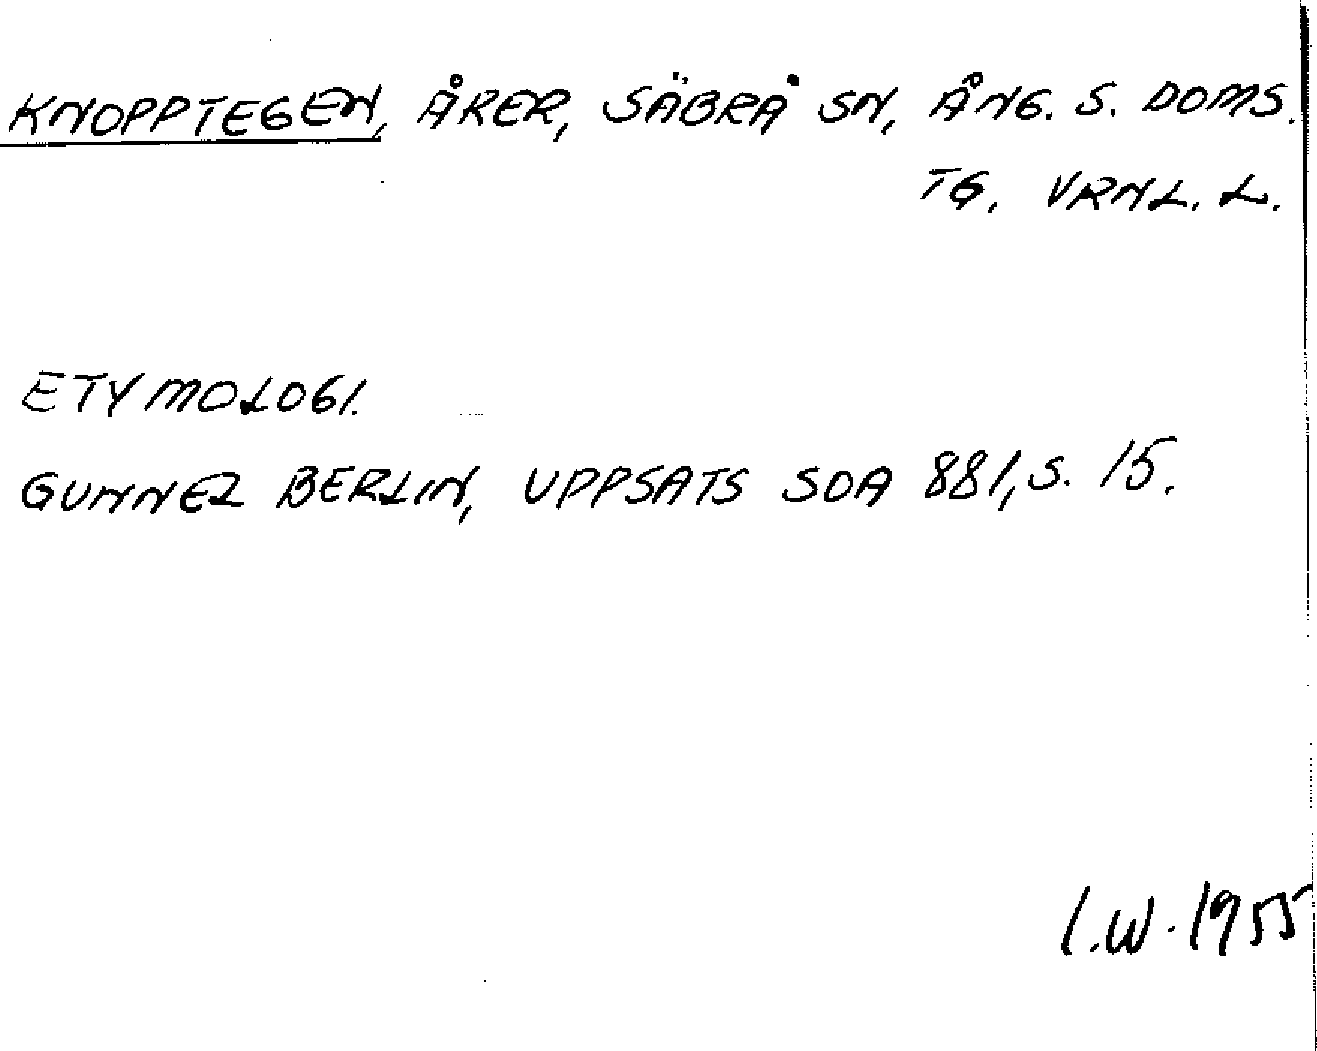 KNOPPTEGEN, ÅKER, SÄBRÅ SN, ÅNG. S. DOMS.
TG. VRNL. L.
ETYMOLOGI.
GUNNEL BERLIN, UPPSATS SOA 881, S. 15.
I.W. 1955